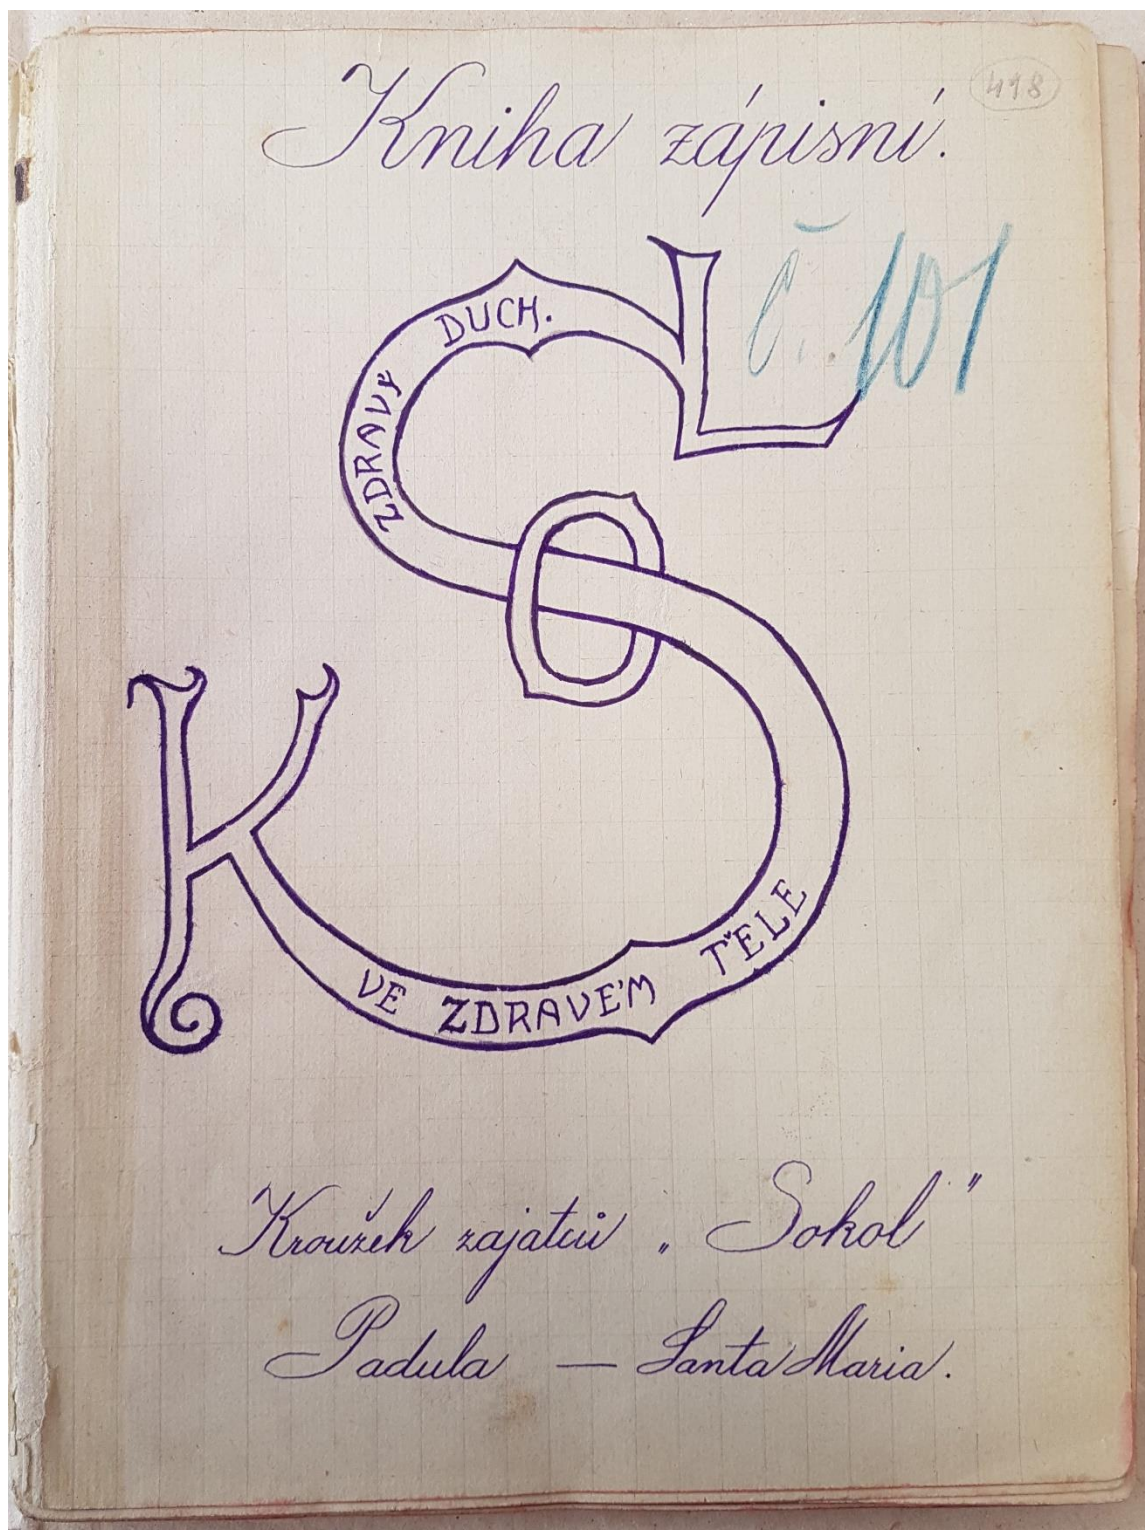 Kniha zápisní.
418
č. 101
ZDRAVÝ DUCH.
VE ZDRAVÉM TĚLE
Kroužek zajatců „Sokol"
Padula — Santa Maria.